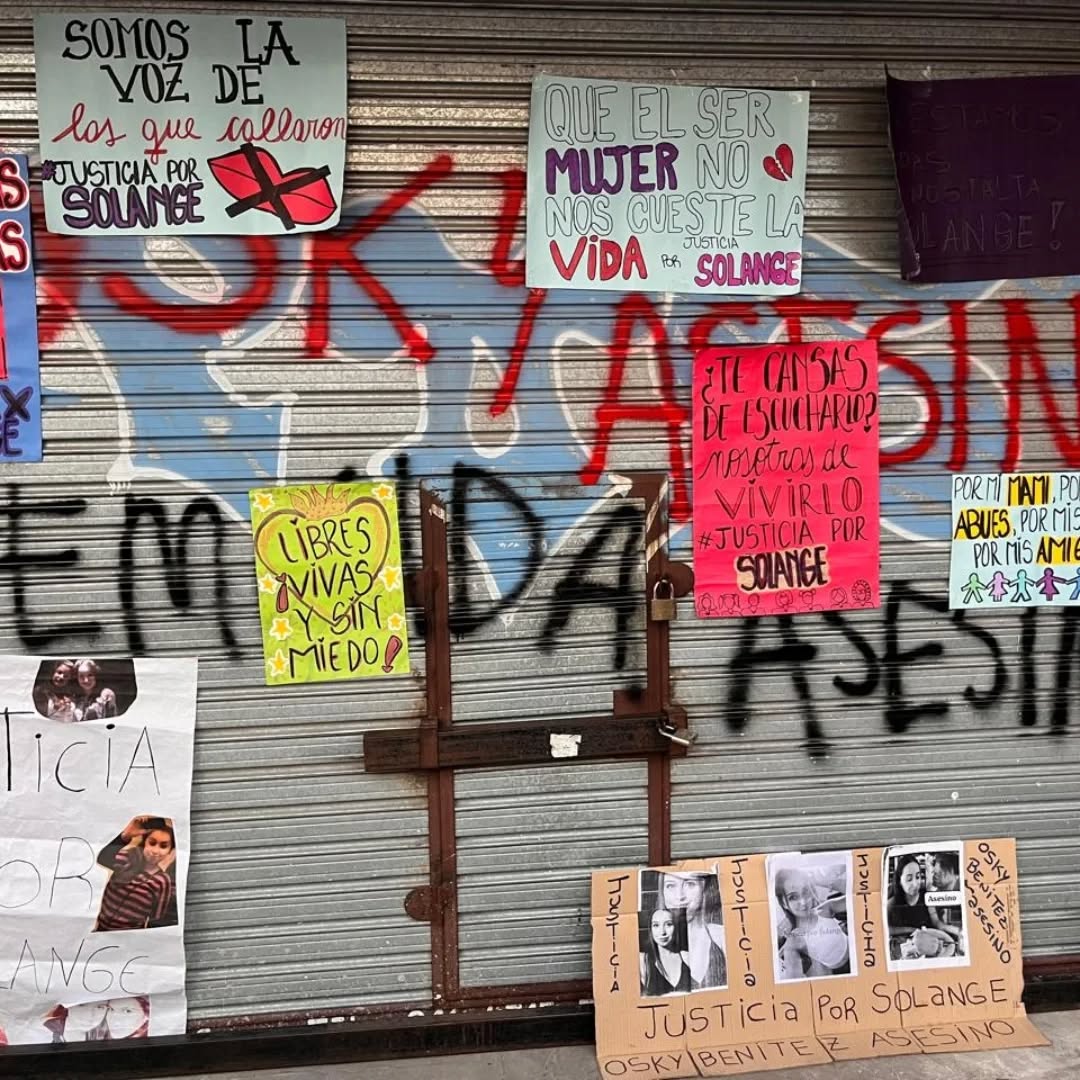 SOMOS LA
VOZ DE
las que callaron
#JUSTICIA POR
SOLANGE
QUE EL SER
MUJER NO
NOS CUESTE LA
VIDA POR JUSTICIA
SOLANGE
ESTAMOS
NOS FALTA
SOLANGE!
AS
AS
SKY ASESIN
¿TE CANSAS
DE ESCUCHARLO?
nosotras de
VIVIRLO
#JUSTICIA POR
SOLANGE
POR MI MAMI, POR
ABUES, POR MIS
POR MIS AMIG
LIBRES
¡VIVAS
Y SIN
MIEDO!
EMIDA ASESIN
TICIA
OR
ANGE
JUSTICIA
JUSTICIA
JUSTICIA
Asesino
OSKY
BENITEZ
ASESINO
JUSTICIA POR SOLANGE
OSKY BENITEZ ASESINO